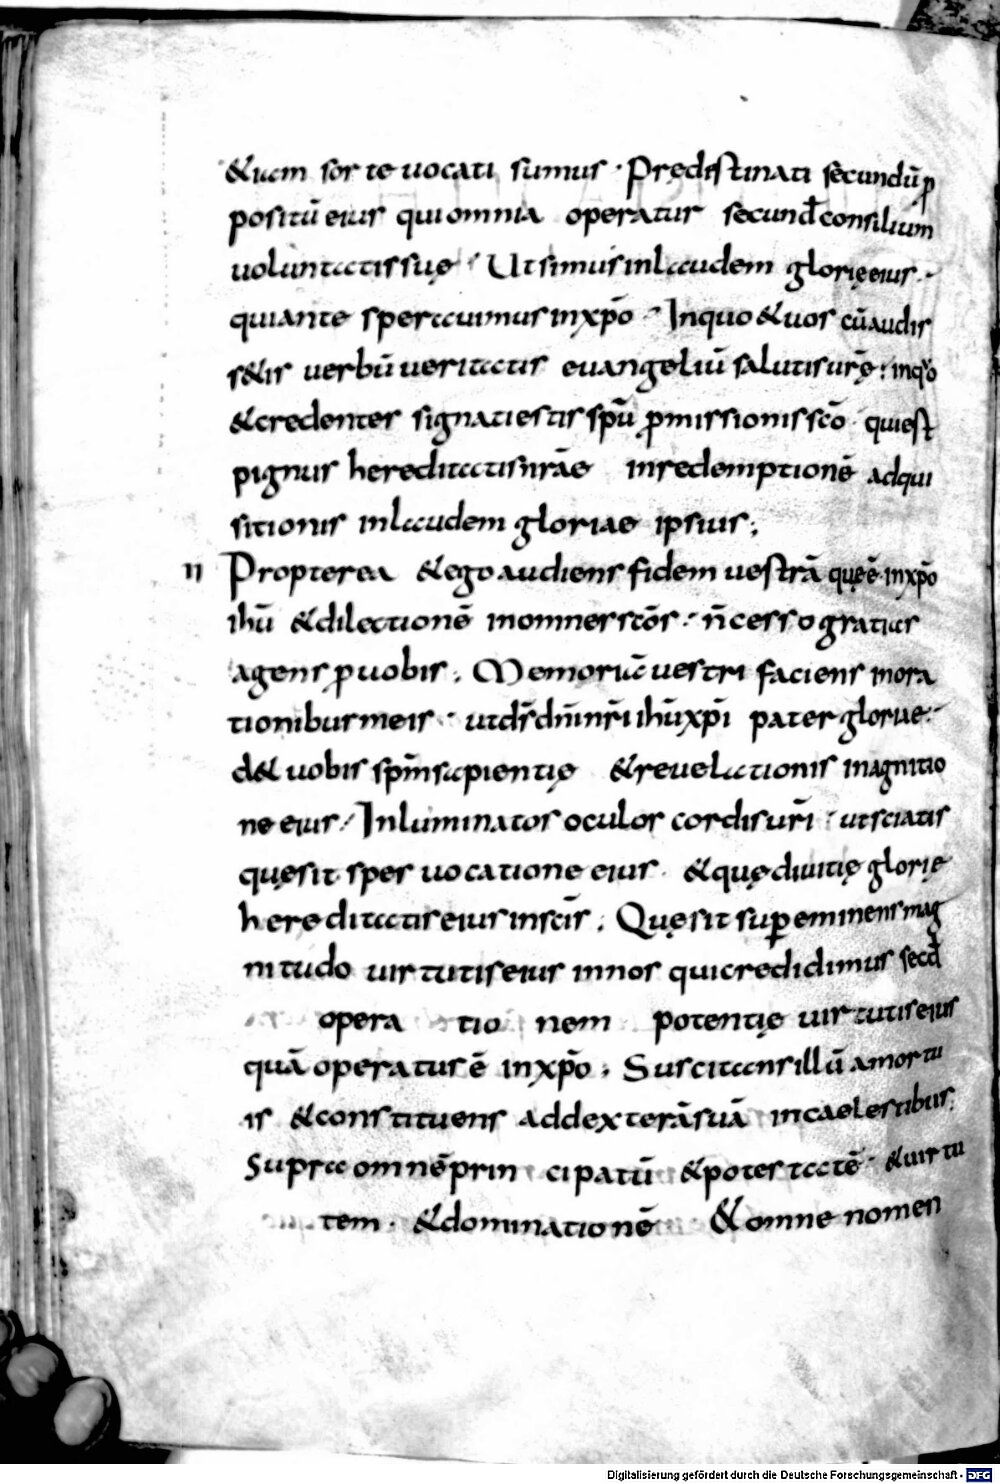 &iam sorte uocati sumus · Prędistinati secundū ꝓ
positū eius qui omnia operatur secund̄ consilium
uoluntatis suę · Ut simus inlaudem glorię eius ·
quiante sperauimus inxp̄o · Inquo &uos cū audis
s&is uerbū ueritatis euangeliū salutis ur̄ę : inquo
&credentes signatiestis sp̄u ꝓmissionis sc̄o · quiest
pignus hereditatis nr̄ae inredemptionē adqui
sitionis inlaudem gloriae ipsius ;
II Propterea &ego audiens fidem uestrā quę ē inxp̄o
ihū &dilectionē inomnes sc̄os · n̄ cesso gratias
agens ꝓ uobis ; Memoriā uestri faciens inora
tionibus meis · utds̄ dn̄i nr̄i ihū xp̄i pater glorae ·
d& uobis sp̄m sapientię &reuelationis inagnitio
ne eius · Inluminatos oculos cordis ur̄i · utsciatis
quęsit spes uocatione eius · &quę diuitię glorię
hereditatis eius insc̄is ; Quęsit suꝑeminens mag
nitudo uirtutis eius innos quicredidimus secd̄
opera tio nem potentię uirtutis eius
quā operatus ē inxp̄o · Suscitans illū amortu
is &constituens addexterā suā incaelestibus ·
Supra omnē prin cipatū &potestatē · &uirtu
tem · &dominationē &omne nomen
Digitalisierung gefördert durch die Deutsche Forschungsgemeinschaft - DFG